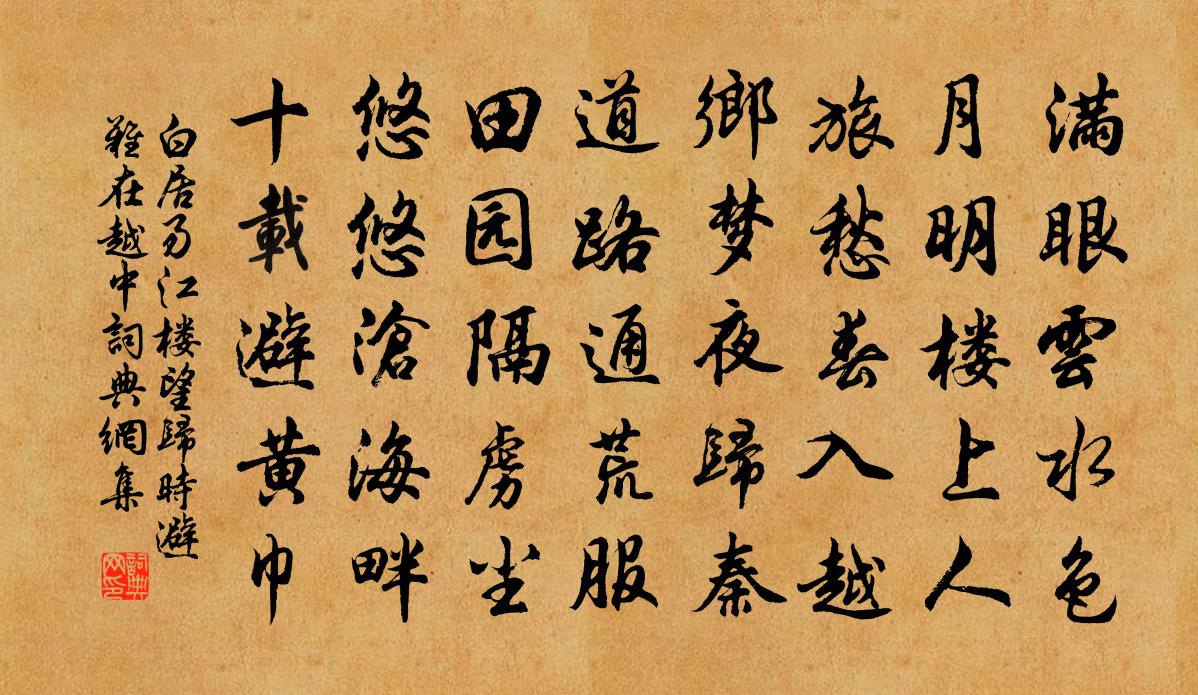 滿眼雲水色
月明楼上人
旅愁春入越
鄉梦夜歸秦
道路通荒服
田园隔虏尘
悠悠滄海畔
十載避黃巾
白居易江楼望歸時避
難在越中詞典網集
詞典
网印